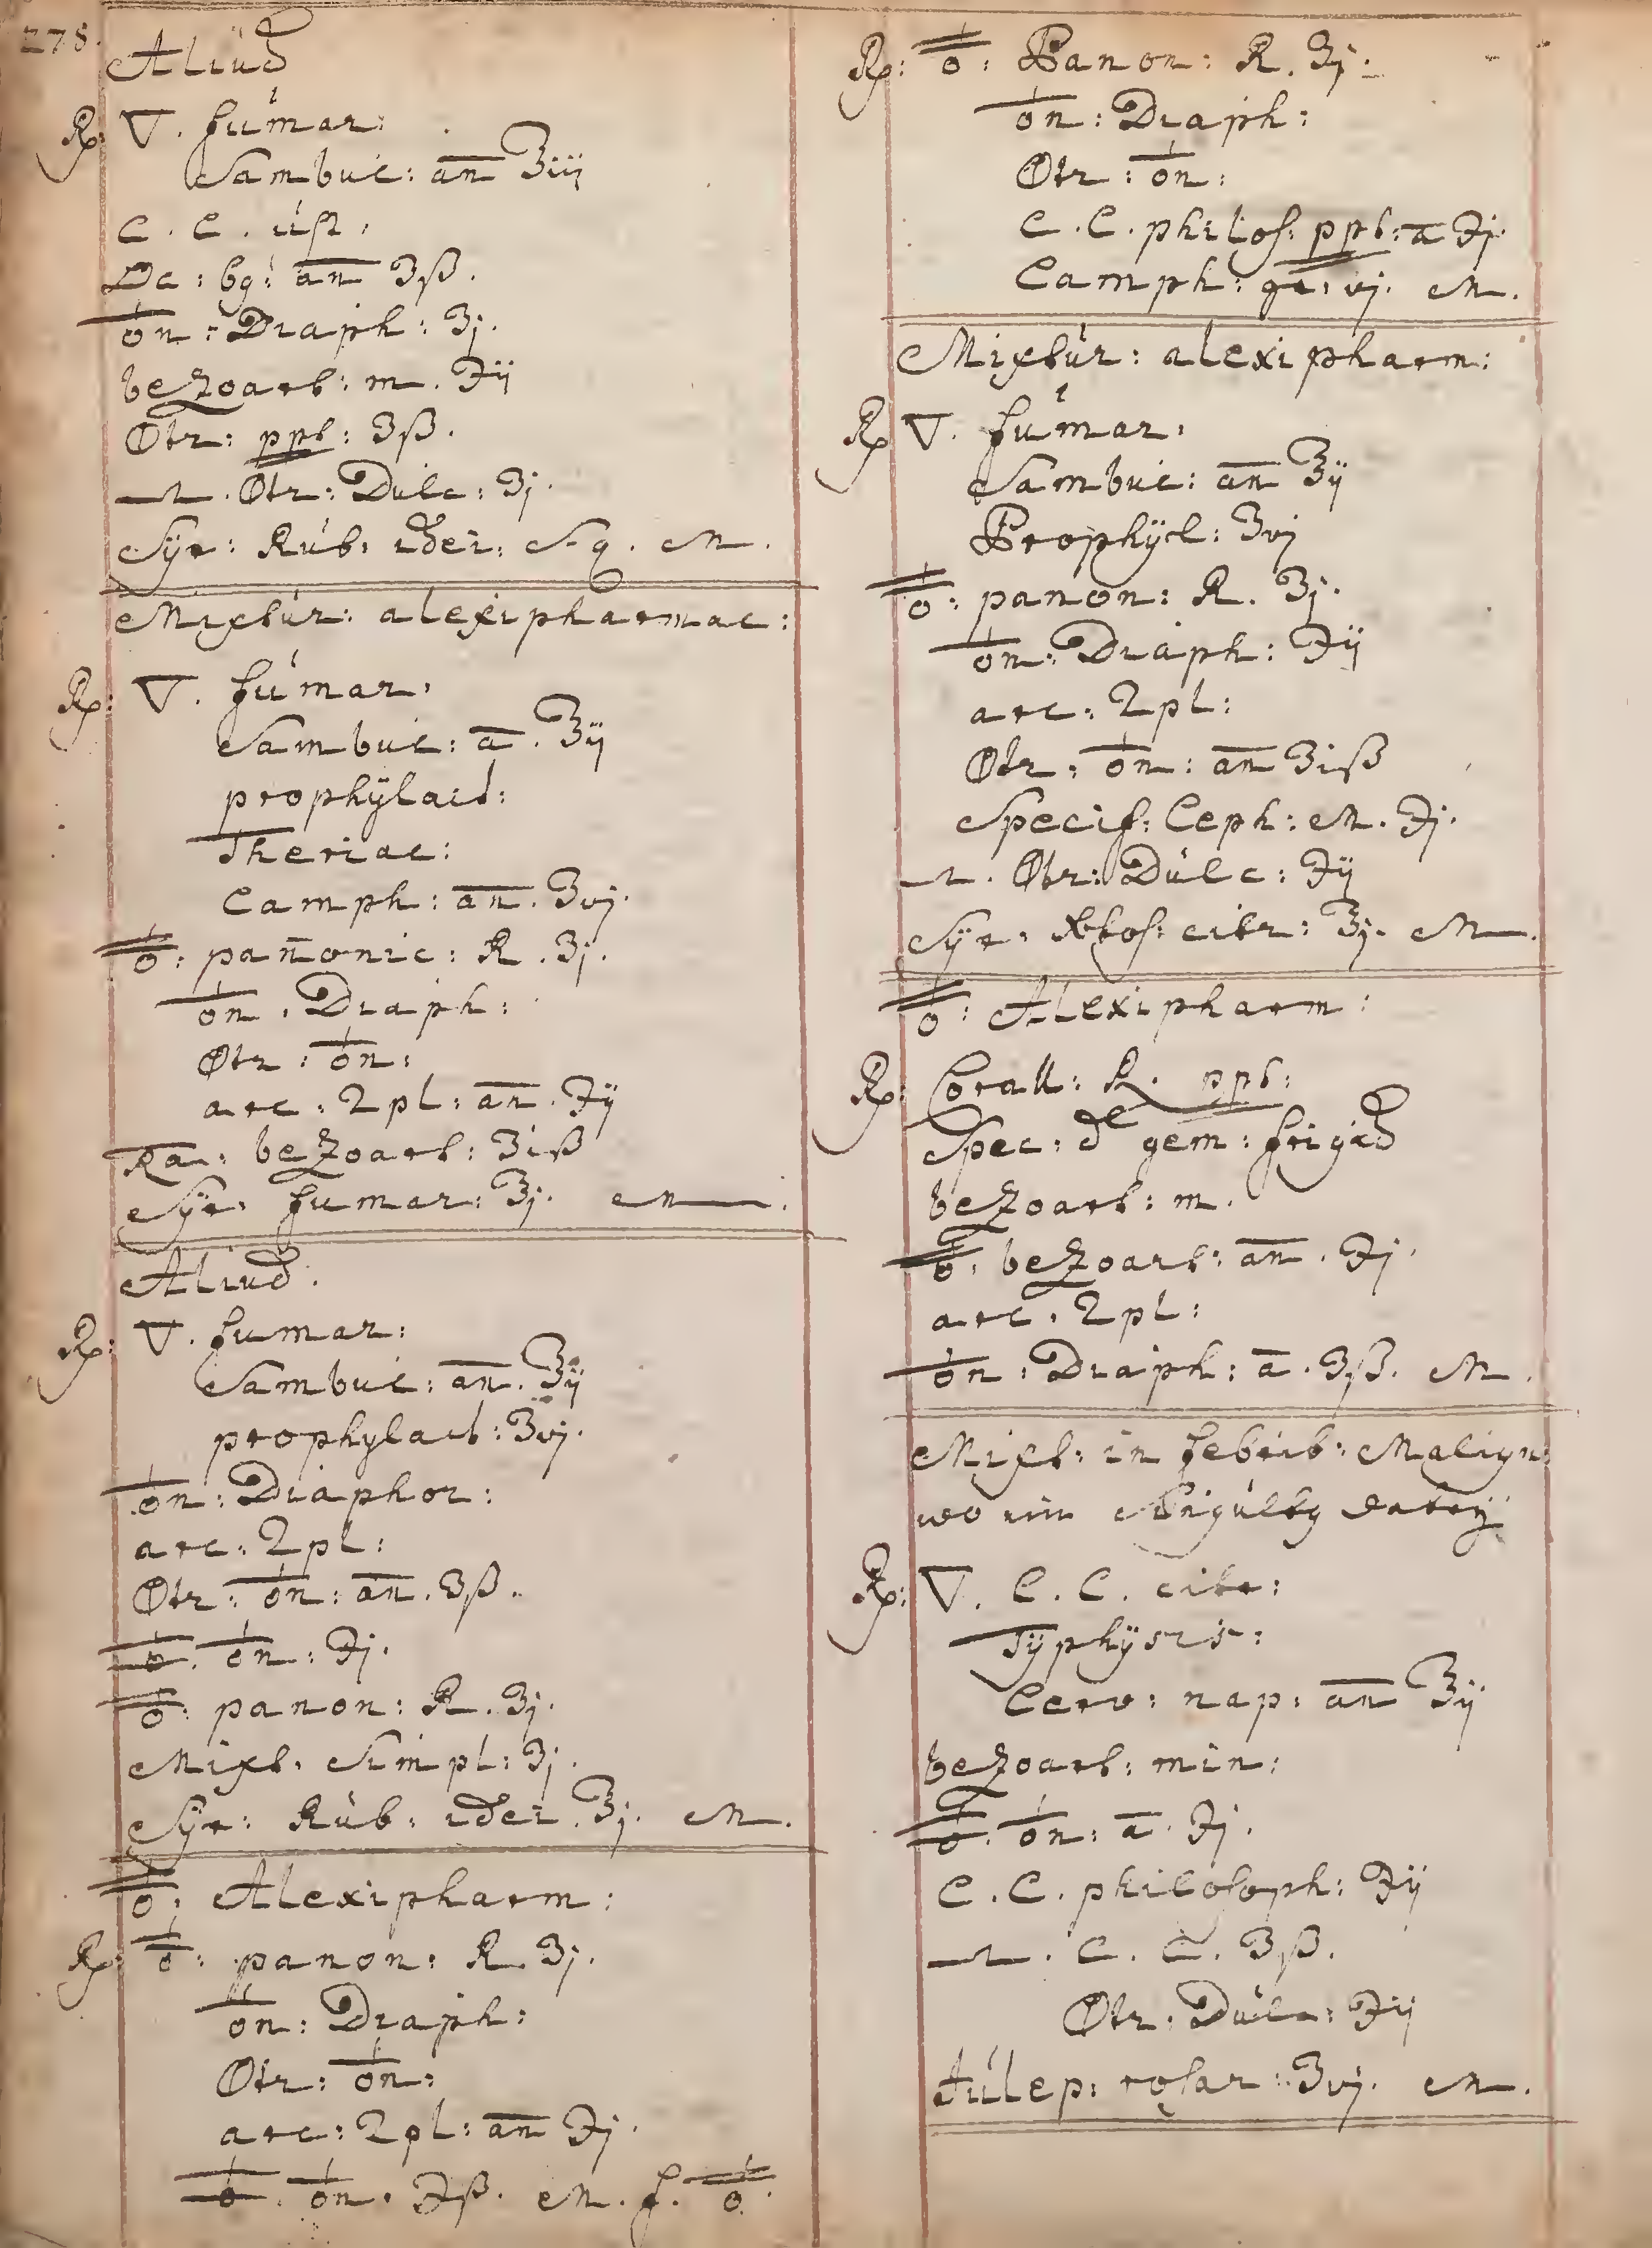 278.
Aliud
Rp: ▽. fumar:
Sambuc: an ℥iij
C. C. ust.
Dc: bg: an ʒß.
♁n: Diaph: ʒj.
bezoart: m. ℈ij
Otr: ppt: ʒß.
Otr: Dulc: ʒj.
Syr: Rub: idei: S. q. M.
Mixtur: alexipharmac:
Rp: ▽. fumar:
Sambuc: a. ℥ij
prophylact:
Theriac:
Camph: an. ʒvj.
♁: pan̄onic: R. ʒj.
♁n. Diaph:
Otr: ♁n:
arc: 2pl: an. ℈ij
Ra: bezoart: ʒiß
Syr: fumar: ℥j. M.
Aliud.
Rp: ▽. fumar:
Sambuc: an. ℥ij
prophylact: ʒvj.
♁n: Diaphor:
arc: 2pl:
Otr: ♁n: an. ʒß.
♁. ♁n: ℈j.
♁: panon: R. ʒj.
Mixt. Simpl: ʒj.
Syr: Rub: idei. ℥j. M.
♁: Alexipharm:
Rp: ♁: panon: R. ʒj.
♁n: Diaph:
Otr: ♁n:
arc: 2pl: an ℈j.
♁. ♁n. ℈ß. M. f. ♁.
Rp: ♁: Panon: R. ʒj.
♁n: Diaph:
Otr: ♁n:
C. C. philos: ppt: a ℈j.
Camph: gr. vj. M.
Mixtur: alexipharm:
Rp ▽. fumar.
Sambuc: an ℥ij
Prophyl: ʒvj
♁: panon: R. ʒj.
♁n: Diaph: ℈ij
arc: 2pl:
Otr: ♁n: an ʒiß
Specif: Ceph: M. ℈j.
Otr: Dulc: ℈ij
Syr. citr: ℥j. M.
♁: Alexipharm:
Rp: Corall: R. ppt:
Spec: de gem: frigid
bezoart: m.
♁. bezoart: an. ℈j.
arc. 2pl:
♁n: Diaph: a. ʒß. M.
Mixt: in febrib: Malign:
wo ein Singultg
Rp: ▽. C. C. citr:
Cerv: nap: an ℥ij
bezoart: min:
♁. ♁n: a. ℈j.
C. C. philosoph: ℈ij
C. C. ʒß.
Otr: Dulc: ℈ij
Julep: rosar: ʒvj. M.